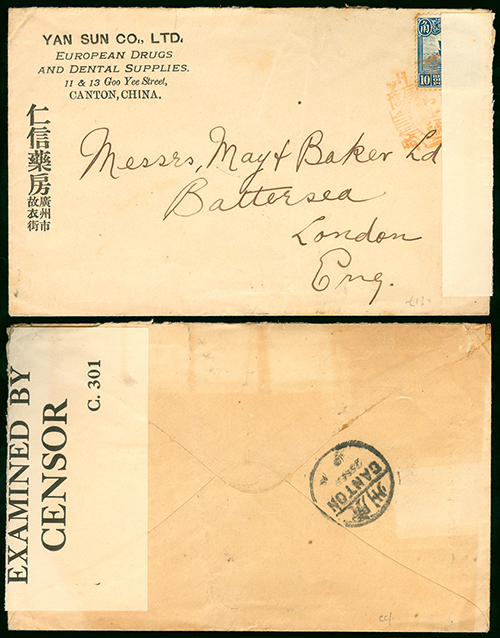 YAN SUN CO., LTD.
EUROPEAN DRUGS
AND DENTAL SUPPLIES.
11 & 13 Goo Yee Street,
CANTON, CHINA.
仁信藥房
廣州市
故衣街
10
Messrs, May & Baker Ld
Battersea
London
Eng.
EXAMINED BY
CENSOR
C. 301
CANTON